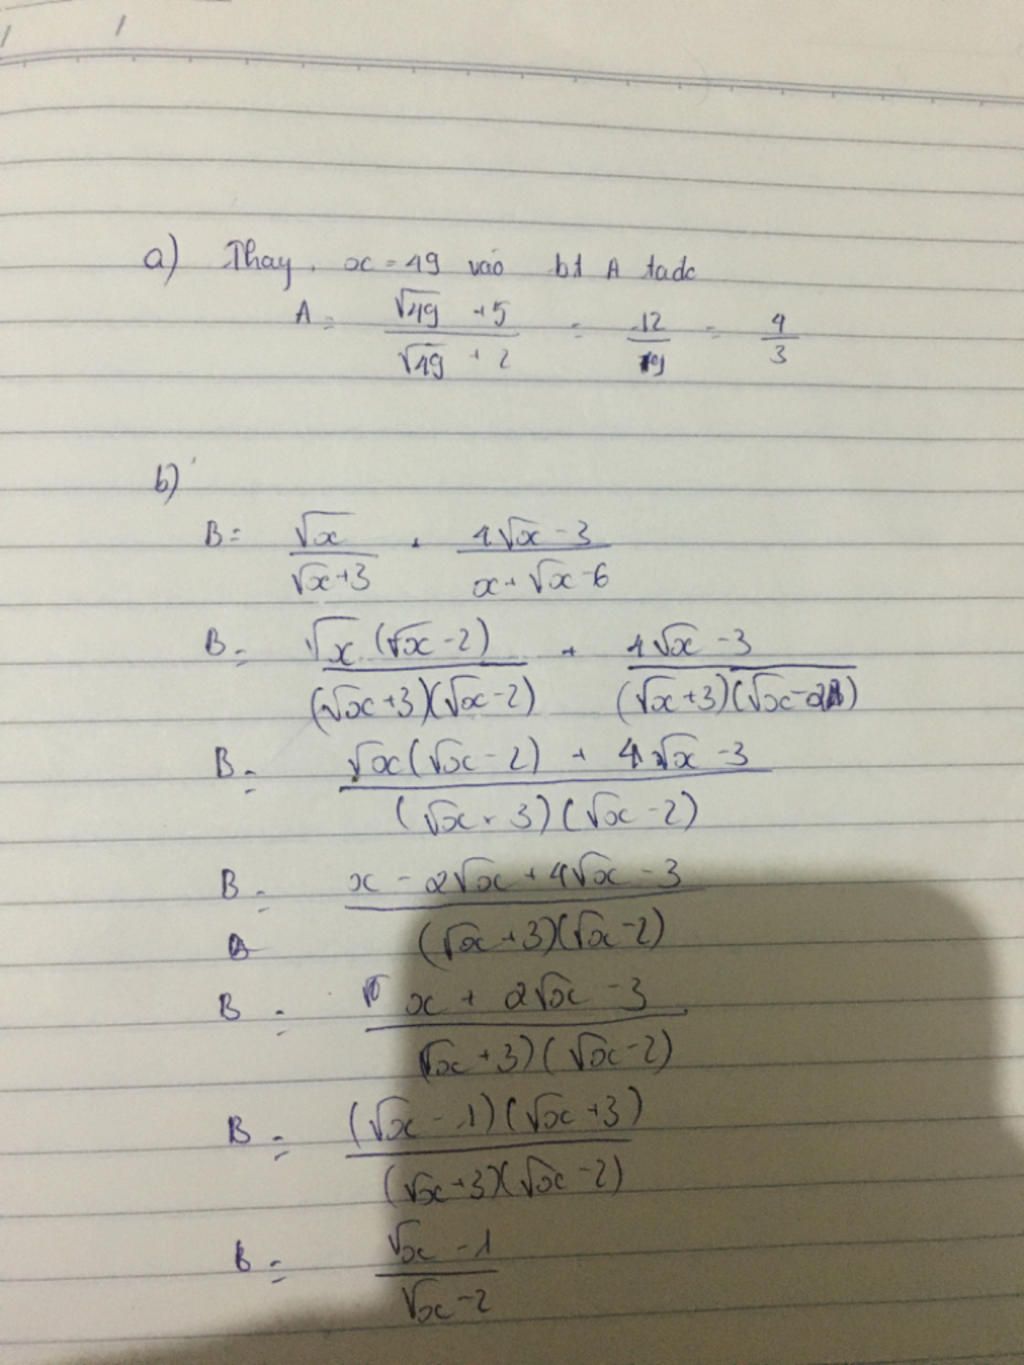 a) Thay x = 49 vào bt A tađc
A = (√49 + 5)/(√49 + 2) = 12/9 = 4/3
b)
B = √x/(√x+3) + (4√x - 3)/(x + √x - 6)
B = √x(√x - 2)/((√x+3)(√x-2)) + (4√x - 3)/((√x+3)(√x-2))
B = (√x(√x - 2) + 4√x - 3)/((√x + 3)(√x - 2))
B = (x - 2√x + 4√x - 3)/((√x+3)(√x-2))
B = (x + 2√x - 3)/(√x+3)(√x-2)
B = (√x - 1)(√x+3)/((√x+3)(√x-2))
B = (√x - 1)/(√x - 2)